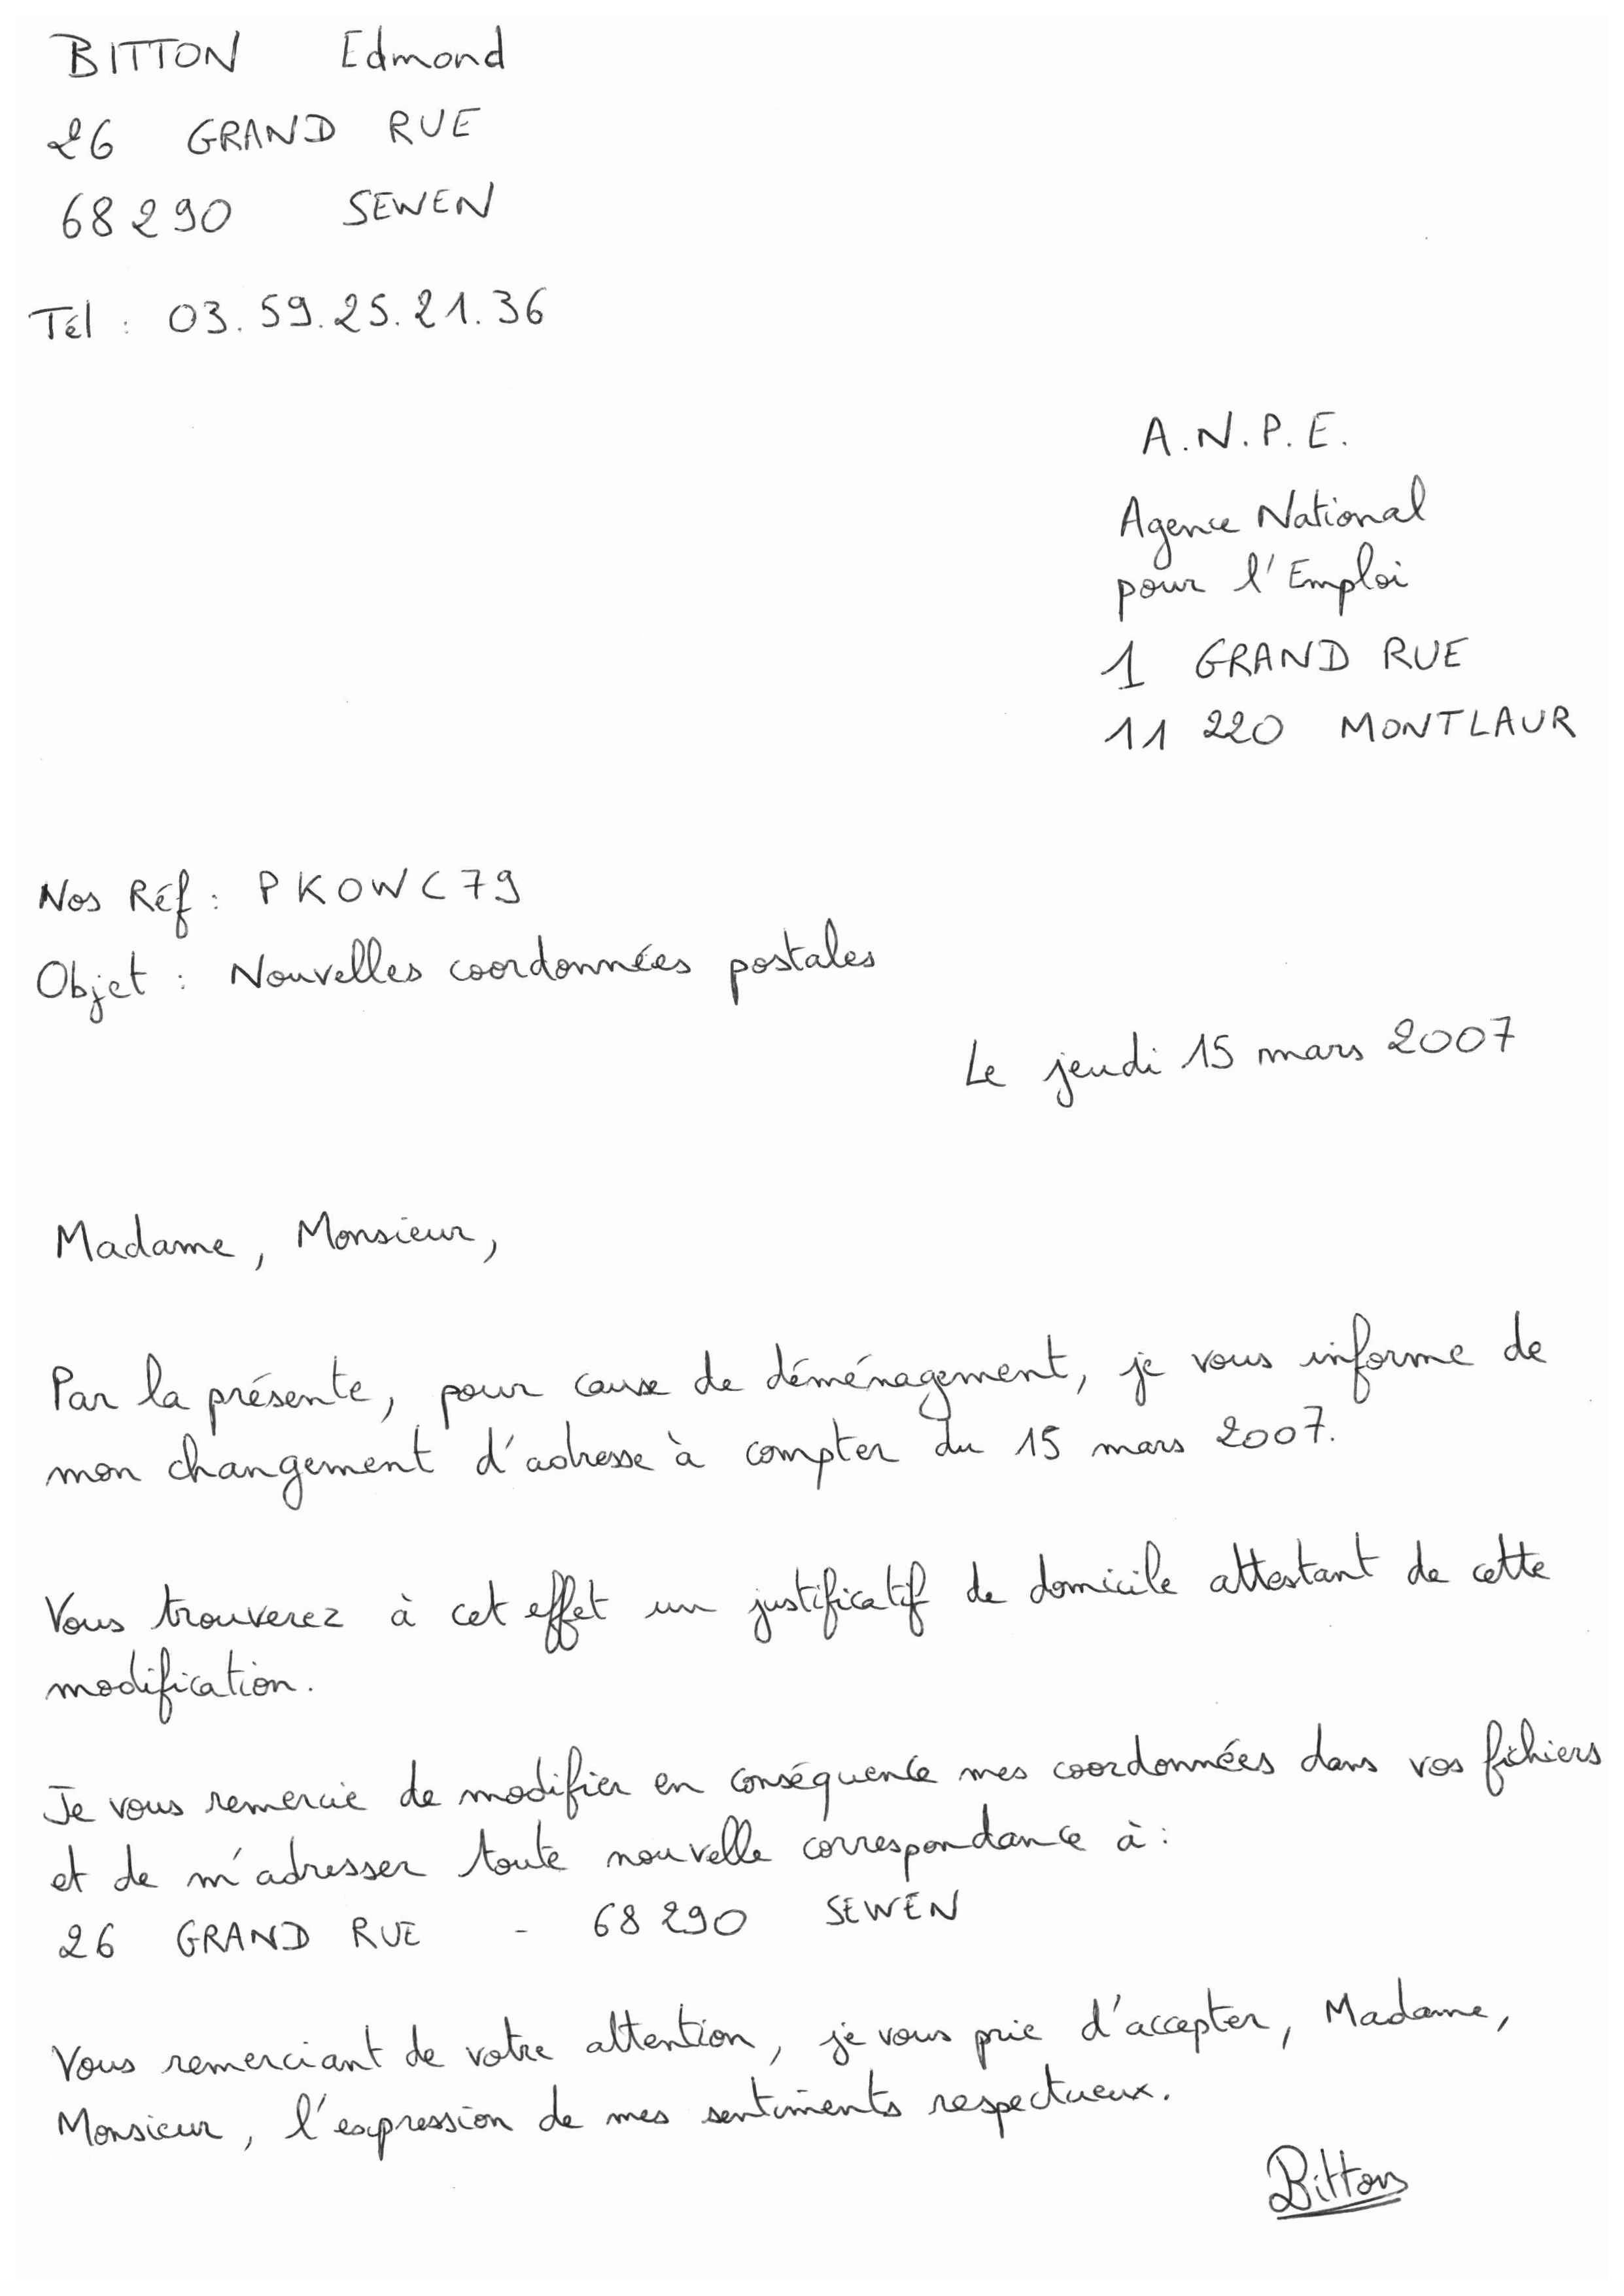 BITTON Edmond
26 GRAND RUE
68290 SEWEN
Tél : 03.59.25.21.36
A.N.P.E.
Agence National
pour l'Emploi
1 GRAND RUE
11 220 MONTLAUR
Nos Réf : PKOWC79
Objet : Nouvelles coordonnées postales
Le jeudi 15 mars 2007
Madame, Monsieur,
Par la présente, pour cause de déménagement, je vous informe de
mon changement d'adresse à compter du 15 mars 2007.
Vous trouverez à cet effet un justificatif de domicile attestant de cette
modification.
Je vous remercie de modifier en conséquence mes coordonnées dans vos fichiers
et de m'adresser toute nouvelle correspondance à :
26 GRAND RUE - 68290 SEWEN
Vous remerciant de votre attention, je vous prie d'accepter, Madame,
Monsieur, l'expression de mes sentiments respectueux.
Bitton